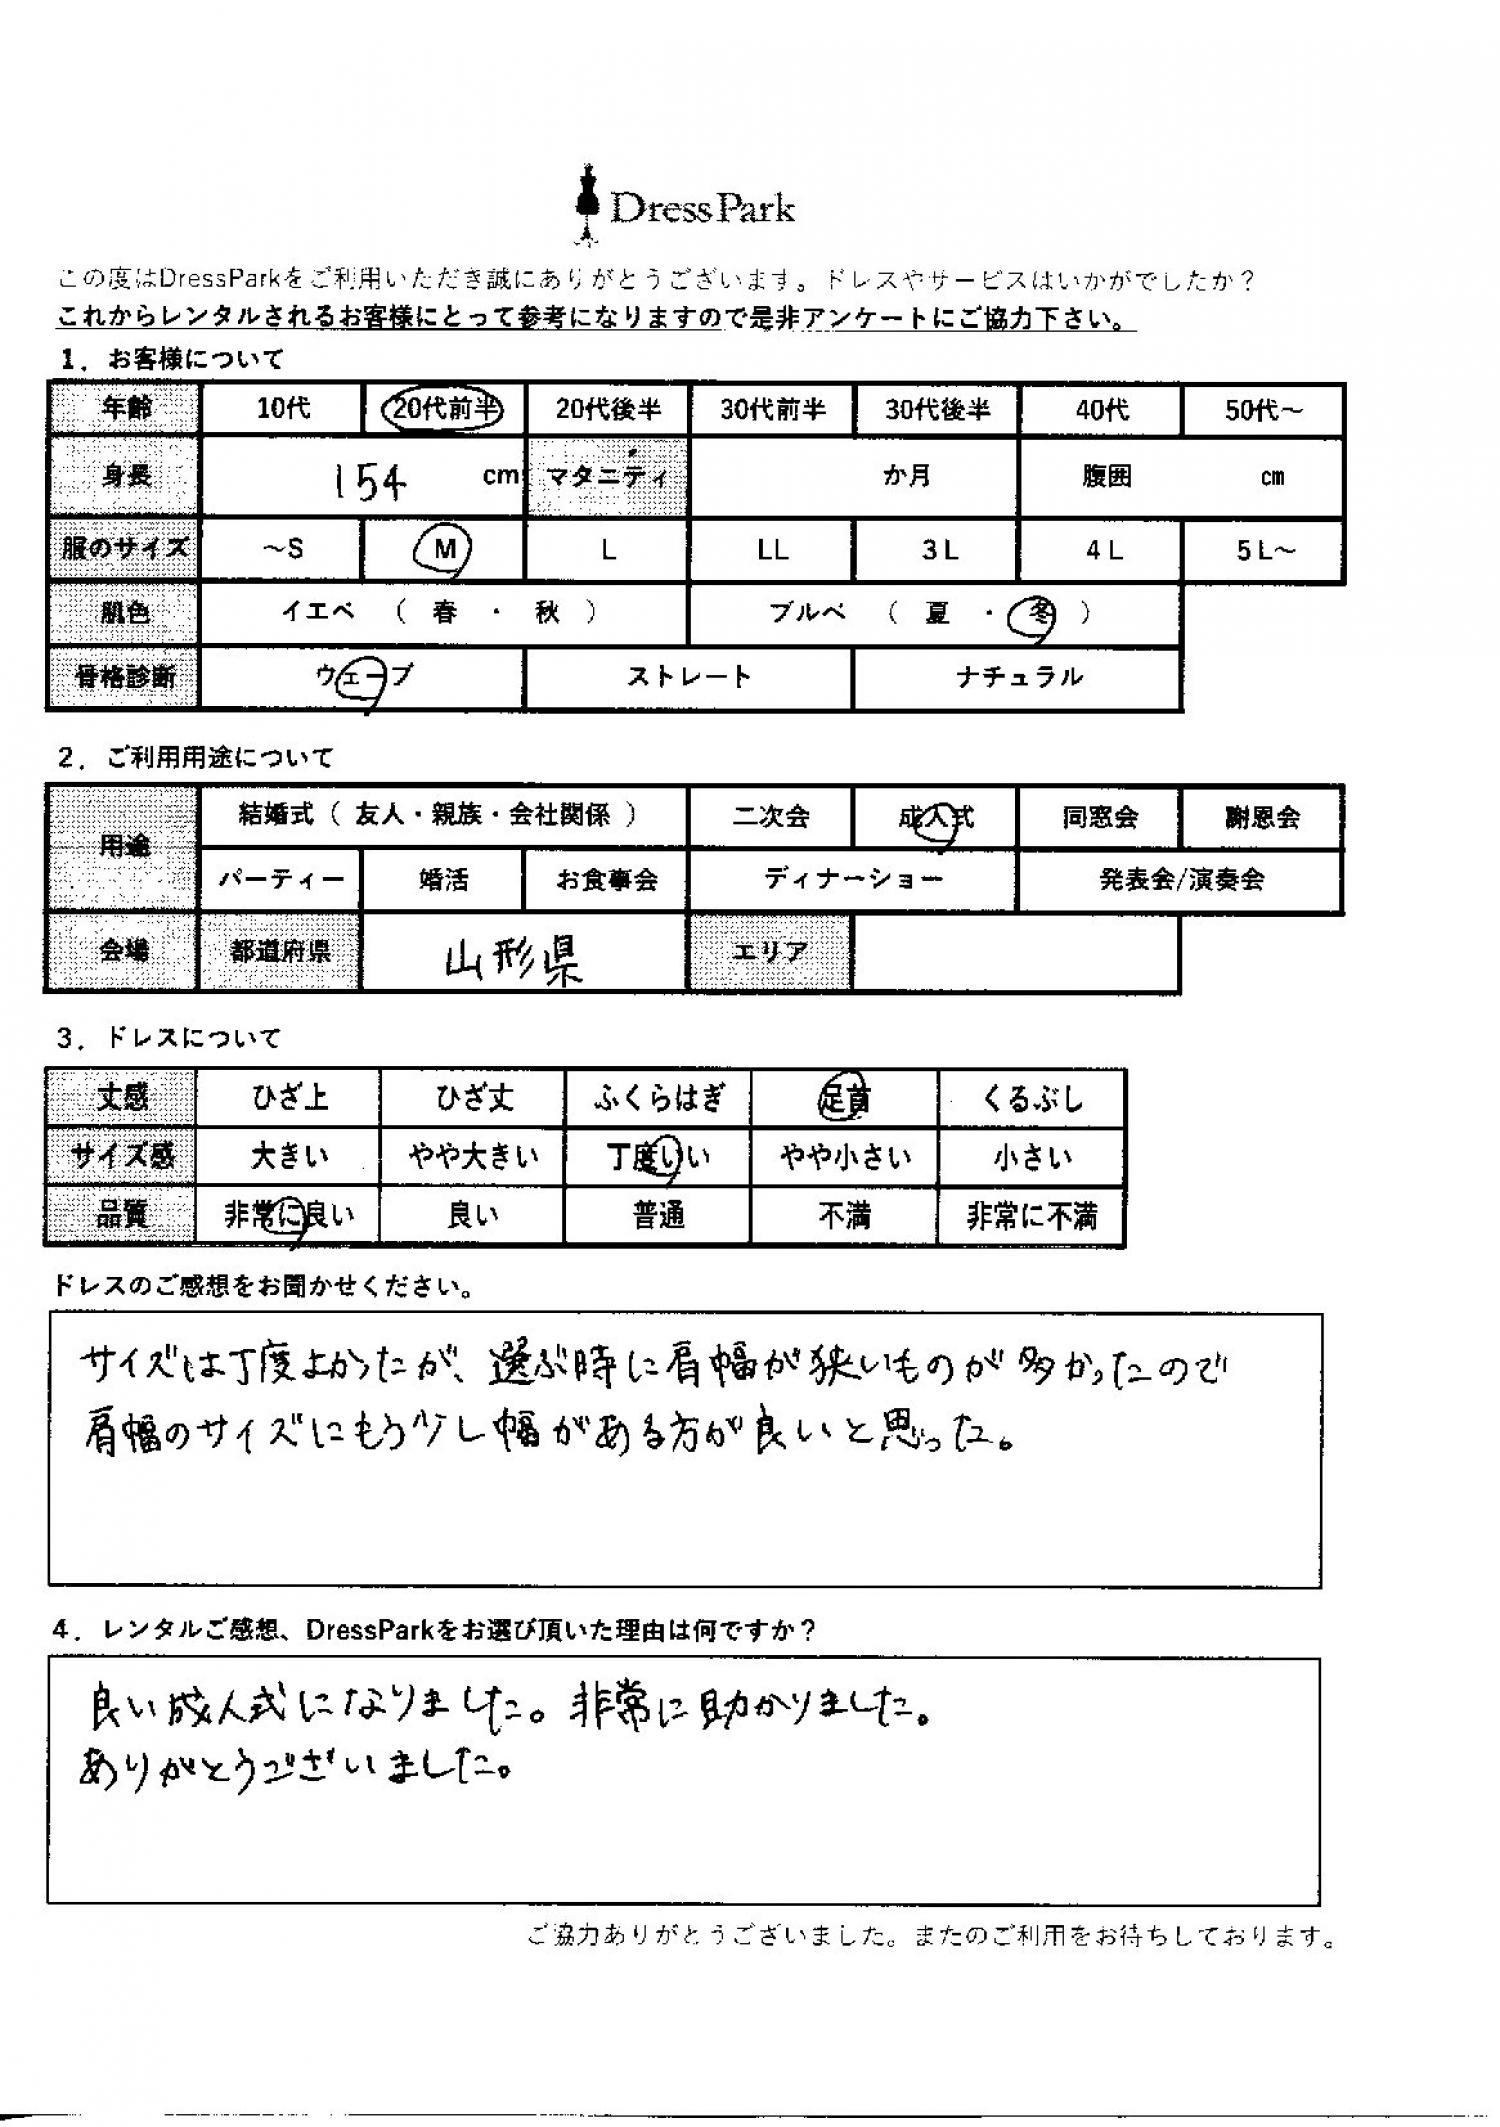 DressPark
この度はDressParkをご利用いただき誠にありがとうございます。ドレスやサービスはいかがでしたか？
これからレンタルされるお客様にとって参考になりますので是非アンケートにご協力下さい。
1．お客様について
年齢 10代 20代前半 20代後半 30代前半 30代後半 40代 50代～
身長 154 cm マタニティ か月 腹囲 cm
服のサイズ ～S M L LL 3L 4L 5L～
肌色 イエベ （ 春 ・ 秋 ） ブルベ （ 夏 ・ 冬 ）
骨格診断 ウェーブ ストレート ナチュラル
2．ご利用用途について
用途 結婚式（ 友人・親族・会社関係 ） 二次会 成人式 同窓会 謝恩会
パーティー 婚活 お食事会 ディナーショー 発表会/演奏会
会場 都道府県 山形県 エリア
3．ドレスについて
丈感 ひざ上 ひざ丈 ふくらはぎ 足首 くるぶし
サイズ感 大きい やや大きい 丁度いい やや小さい 小さい
品質 非常に良い 良い 普通 不満 非常に不満
ドレスのご感想をお聞かせください。
サイズは丁度よかったが、選ぶ時に肩幅が狭いものが多かったので
肩幅のサイズにもう少し幅がある方が良いと思った。
4．レンタルご感想、DressParkをお選び頂いた理由は何ですか？
良い成人式になりました。非常に助かりました。
ありがとうございました。
ご協力ありがとうございました。またのご利用をお待ちしております。